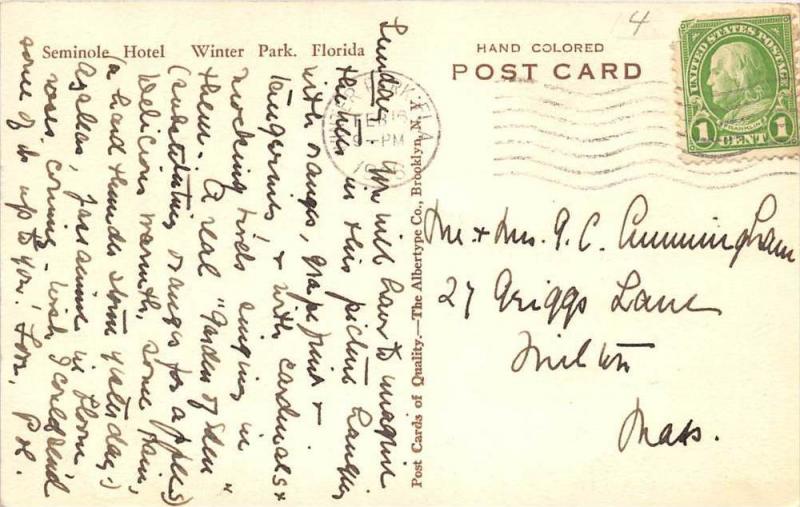 Seminole Hotel Winter Park. Florida
HAND COLORED
POST CARD
4
UNITED STATES POSTAGE
FRANKLIN
1 CENT 1
WINTER PARK, FLA.
FEB 16
9 - PM
Post Cards of Quality.—The Albertype Co., Brooklyn, N. Y.
Sunday. You will have to imagine
the trees in this picture hanging
with oranges, grape fruit &
tangerines, & with cardinals &
mocking birds singing in
them. A real "Garden of Eden"
(substituting oranges for apples)
Delicious warmth, some rain,
(a hard thunder storm yesterday.)
Azaleas, jassamine in bloom
roses coming - wish I could send
some of it up to you. Love. P. H.
Mr. & Mrs. A. C. Cunningham
27 Griggs Lane
Milton
Mass.